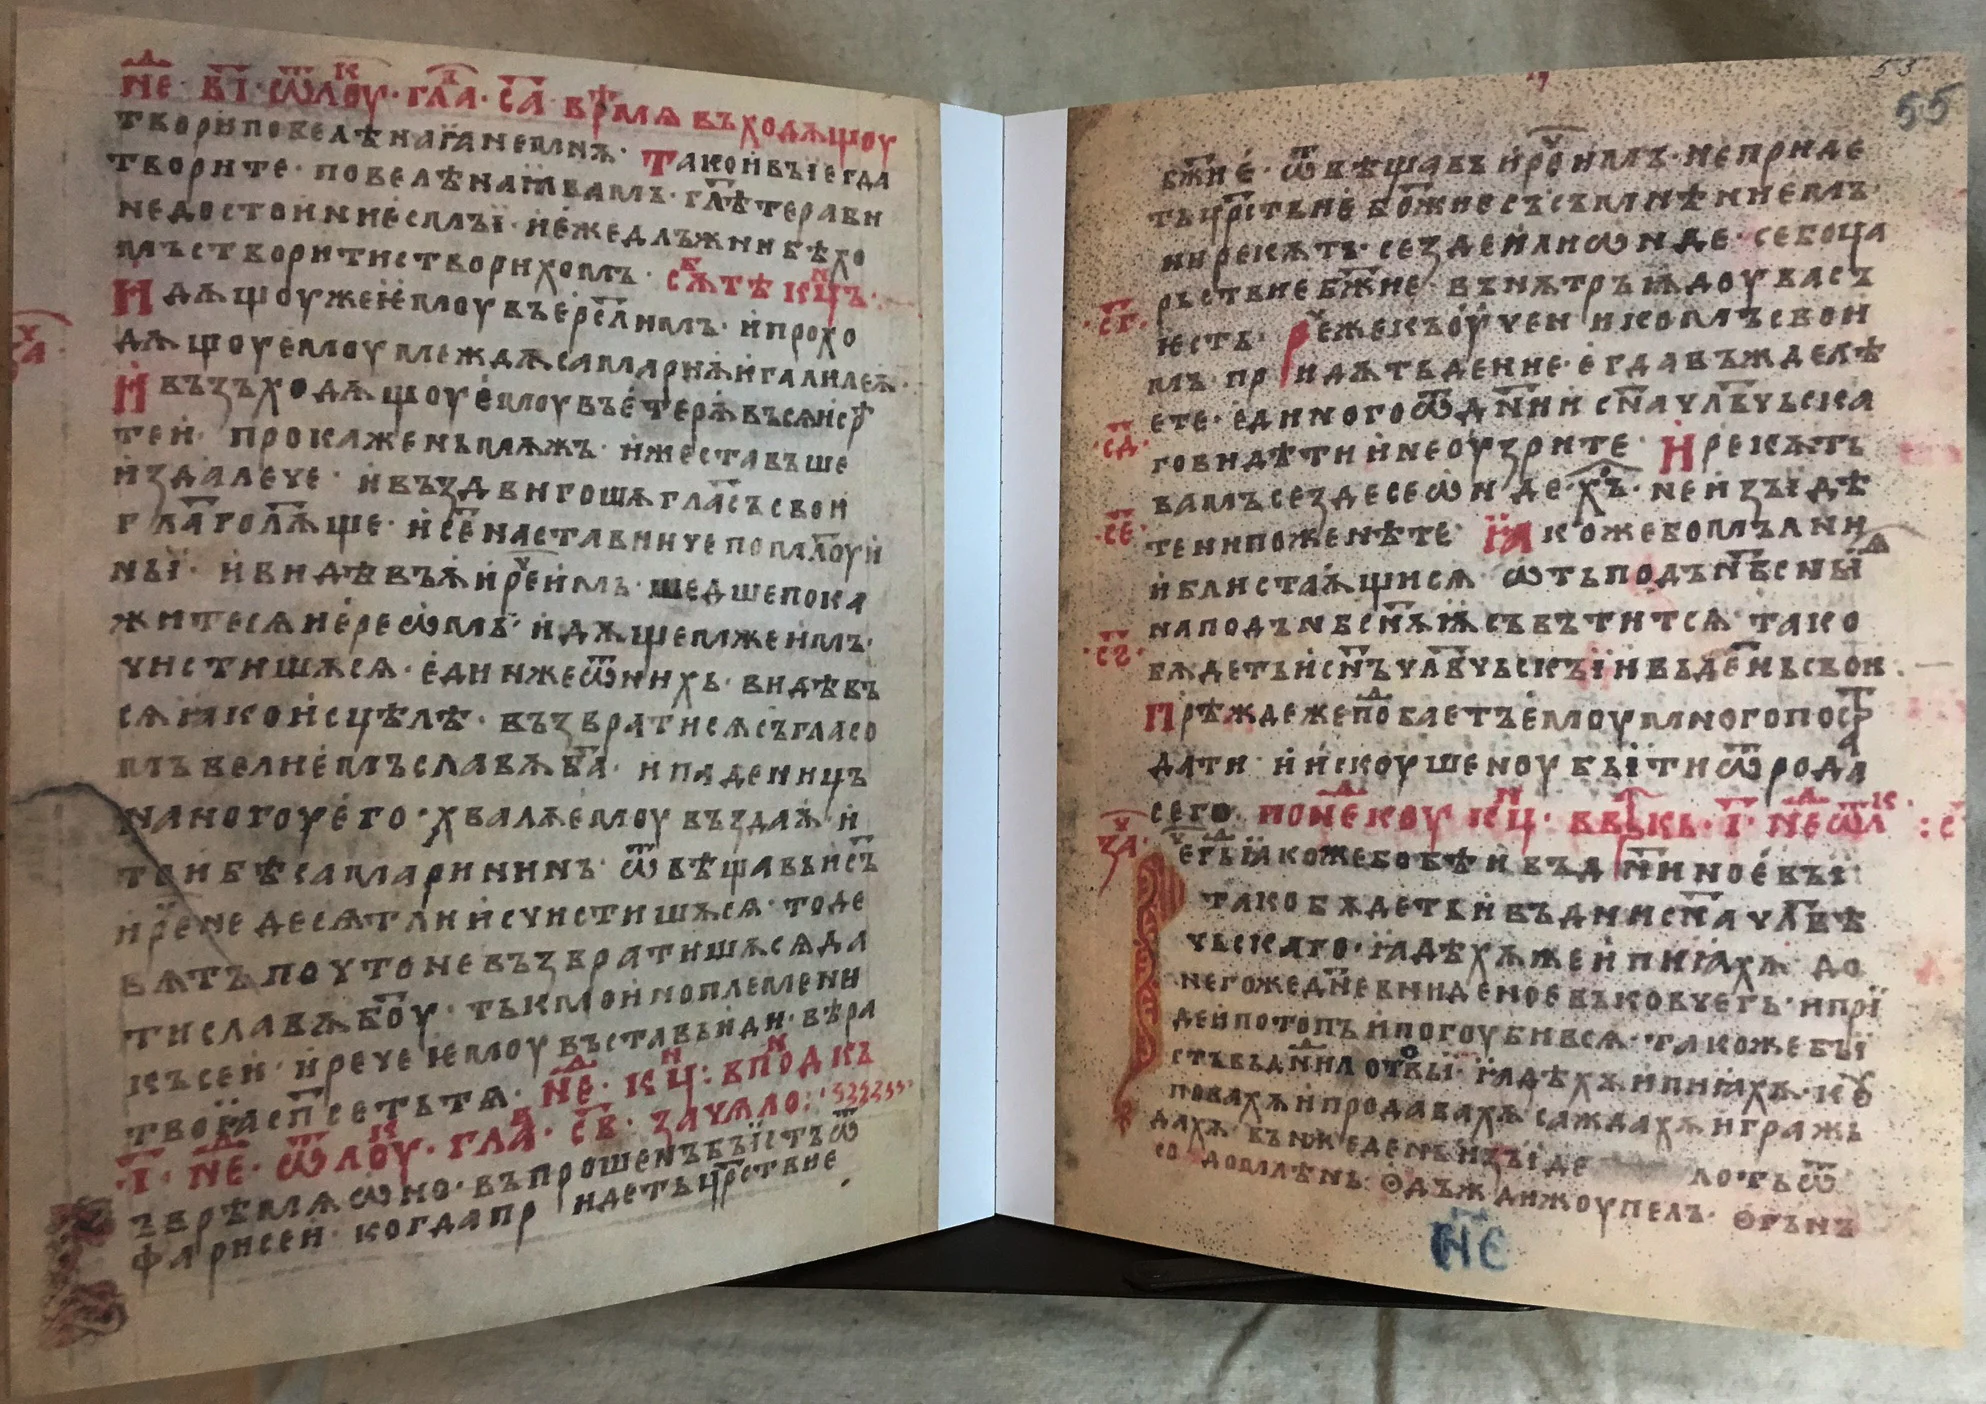 не· ві· ѿ лоу· гла· са· врѣмѧ въходѧщоу
творнповелѣнаꙗнемнѫ· такоивыегда
творите· повелѣнаꙗвамъ· глѣтерабн
недостоинниесмъї· иежедлъжнибѣхо
мъстворитистворихомъ· сѫтѣ кцъ·
идѫщоужеѥмоувъерслимъ· ипрохо
дѫщоуемоумеждѫсамариѫигалилеѫ·
ивъзъходѧщоуемоувъетерѫвьсѧиср
теи· прокаженьмѫжъ· ижесташѧ
издалече· ивъздвигошѫгласъсвои
глаголѫще· исе наставничепомлоуи
нъї· ивидѣвъѫирееимъ· шедшепока
житесѧиереѡмъ· идѫщемжеимъ·
чистишѫсѧ· единжеѿнихъ· видѣвъ
сѧꙗкоисцѣлѣ· възвратисѧсъгласо
мъвелиемъславѫба· ипаденицъ
наногоуего· хвалѫемоувъздаѫ и
тоибѣсамарининъ· ѿвѣщавьисъ
ирене десѧтлиисчистишѫсѧ· тоде
вѧтъпочтоневъзвратишѫсѧда
тиславѫбоу· тъкмоиноплемени
късеи· иречеѥмоувъставьиди· вѣра
твоꙗспсетьтѧ· не· кц: впⷪдкъ
·ї· не· ѿ лоу· гла· св· зачѧло:
ъврѣмѧѡно· въпрошенъбыїстъѿ
фарисеи· когдапридетьцрствие
55
бжие· ѿвѣщавъиреимъ· неприде
тьцрствие божиесъсъмнѣниемъ·
инрекѫтъ· сездеилиѡнде· себоца
рьствиебжие· вънѫтръѭдоувасъ
ѥсть· режекъоученикомъсвои
мъ· придѫтьдение· егдавъжделѣ
ете· единогоѿднии сначлвчьска
говидѣтиинеоузрите· ирекѫтъ
вамъсездесеѡнде·хъ· неизъїдѣ
тенипоженѣте· ꙗкожебомълнн
иблистаѫщисѧ· ѡтьподънбсныїѧ
наподънбснѫѭсъвътитсѧ· тако
бѫдетьиснъчлвчьскъїивъденьсвои·
прѣждежеподбаетъемоумногопостр
дати· иискоушеноубыїтиѿрода
сего· понекоу кц· ввткъ· ї· неѿл
егъꙗкожебобѣивъднииноевъї
такобѫдетьивъдниисначлвѣ
чьскаго· ꙗдѣхѫжеипиꙗхѫ· до
негожедневниденоевъковчегъ· ипрї
деипотопъипогоубивсѧ· такожебыї
стьвьдниилотовыї· ꙗдѣхѫипиꙗхѫ· коу
повахѫипродавахѫсаждахѫигражь
дахѫ· въньжеденьизыїде лотьѿ
со домлѣнь· одъждижоупелъ· огънь
не